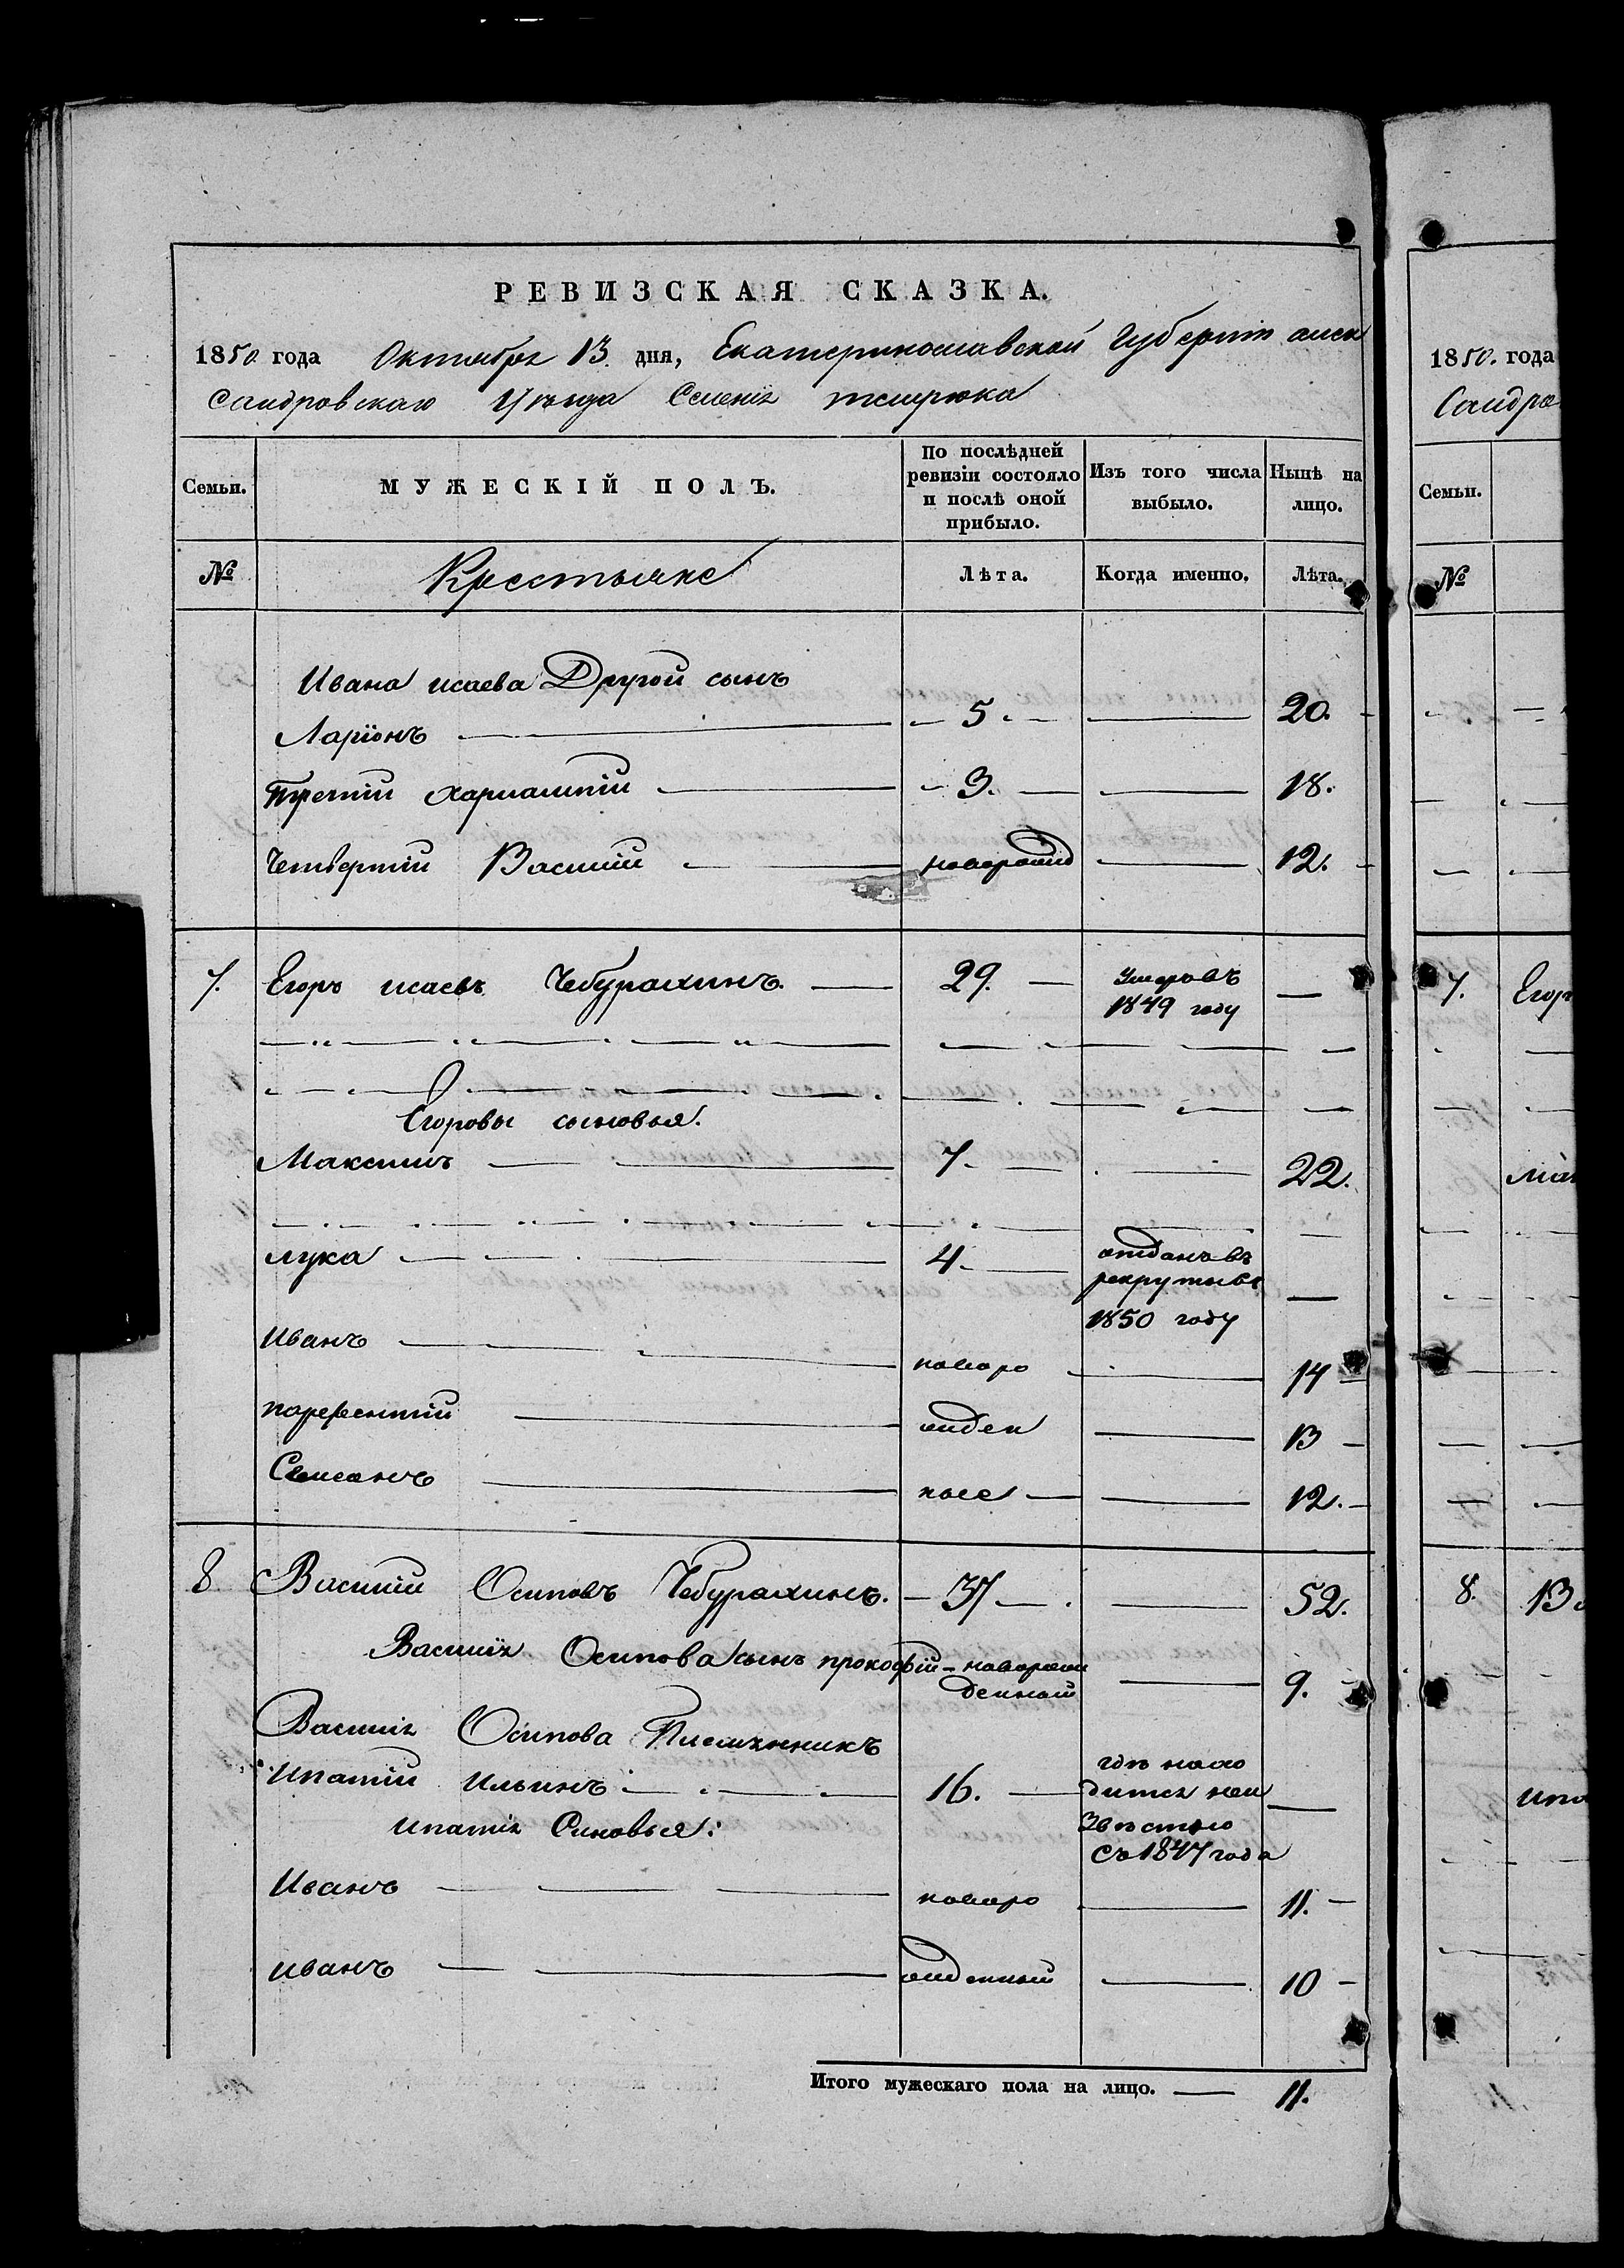 РЕВИЗСКАЯ СКАЗКА.
1850 года Октября 13 дня, Екатеринославской Губерніи алек
сандровскаго Уѣзда Селенія темрюка
Семьи. МУЖЕСКІЙ ПОЛЪ. По послѣдней ревизіи состояло и послѣ оной прибыло. Изъ того числа выбыло. Нынѣ на лицо.
№ Крестьяне Лѣта. Когда именно. Лѣта.
Ивана исаева Другой сынъ
Ларіонъ 5 20.
Третій харлампій 3. 18.
Четвертій Василій новорожд 12.
7. Егоръ исаевъ Чебурахинъ. 29. Умеръ въ
1849 году
Егоровы сыновья.
Максимъ 7. 22.
лука 4. отданъ въ
рекруты въ
1850 году
Иванъ новоро 14
парфентій жден 13
Семенъ ные 12.
8 Василій Осиповъ Чебурахинъ. 37 52.
Василія Осипова сынъ прокофій новорож
денной 9.
Василія Осипова Племянникъ
ипатій Ильинъ 16. гдѣ нахо
дится неи
звѣстно
съ 1847 года
ипатія Сыновья:
Иванъ новоро 11.
иванъ жденный 10
Итого мужескаго пола на лицо. 11.
1850. года
Сандро
Семьи.
№
7. Егор
мак
8. Ва
ипа